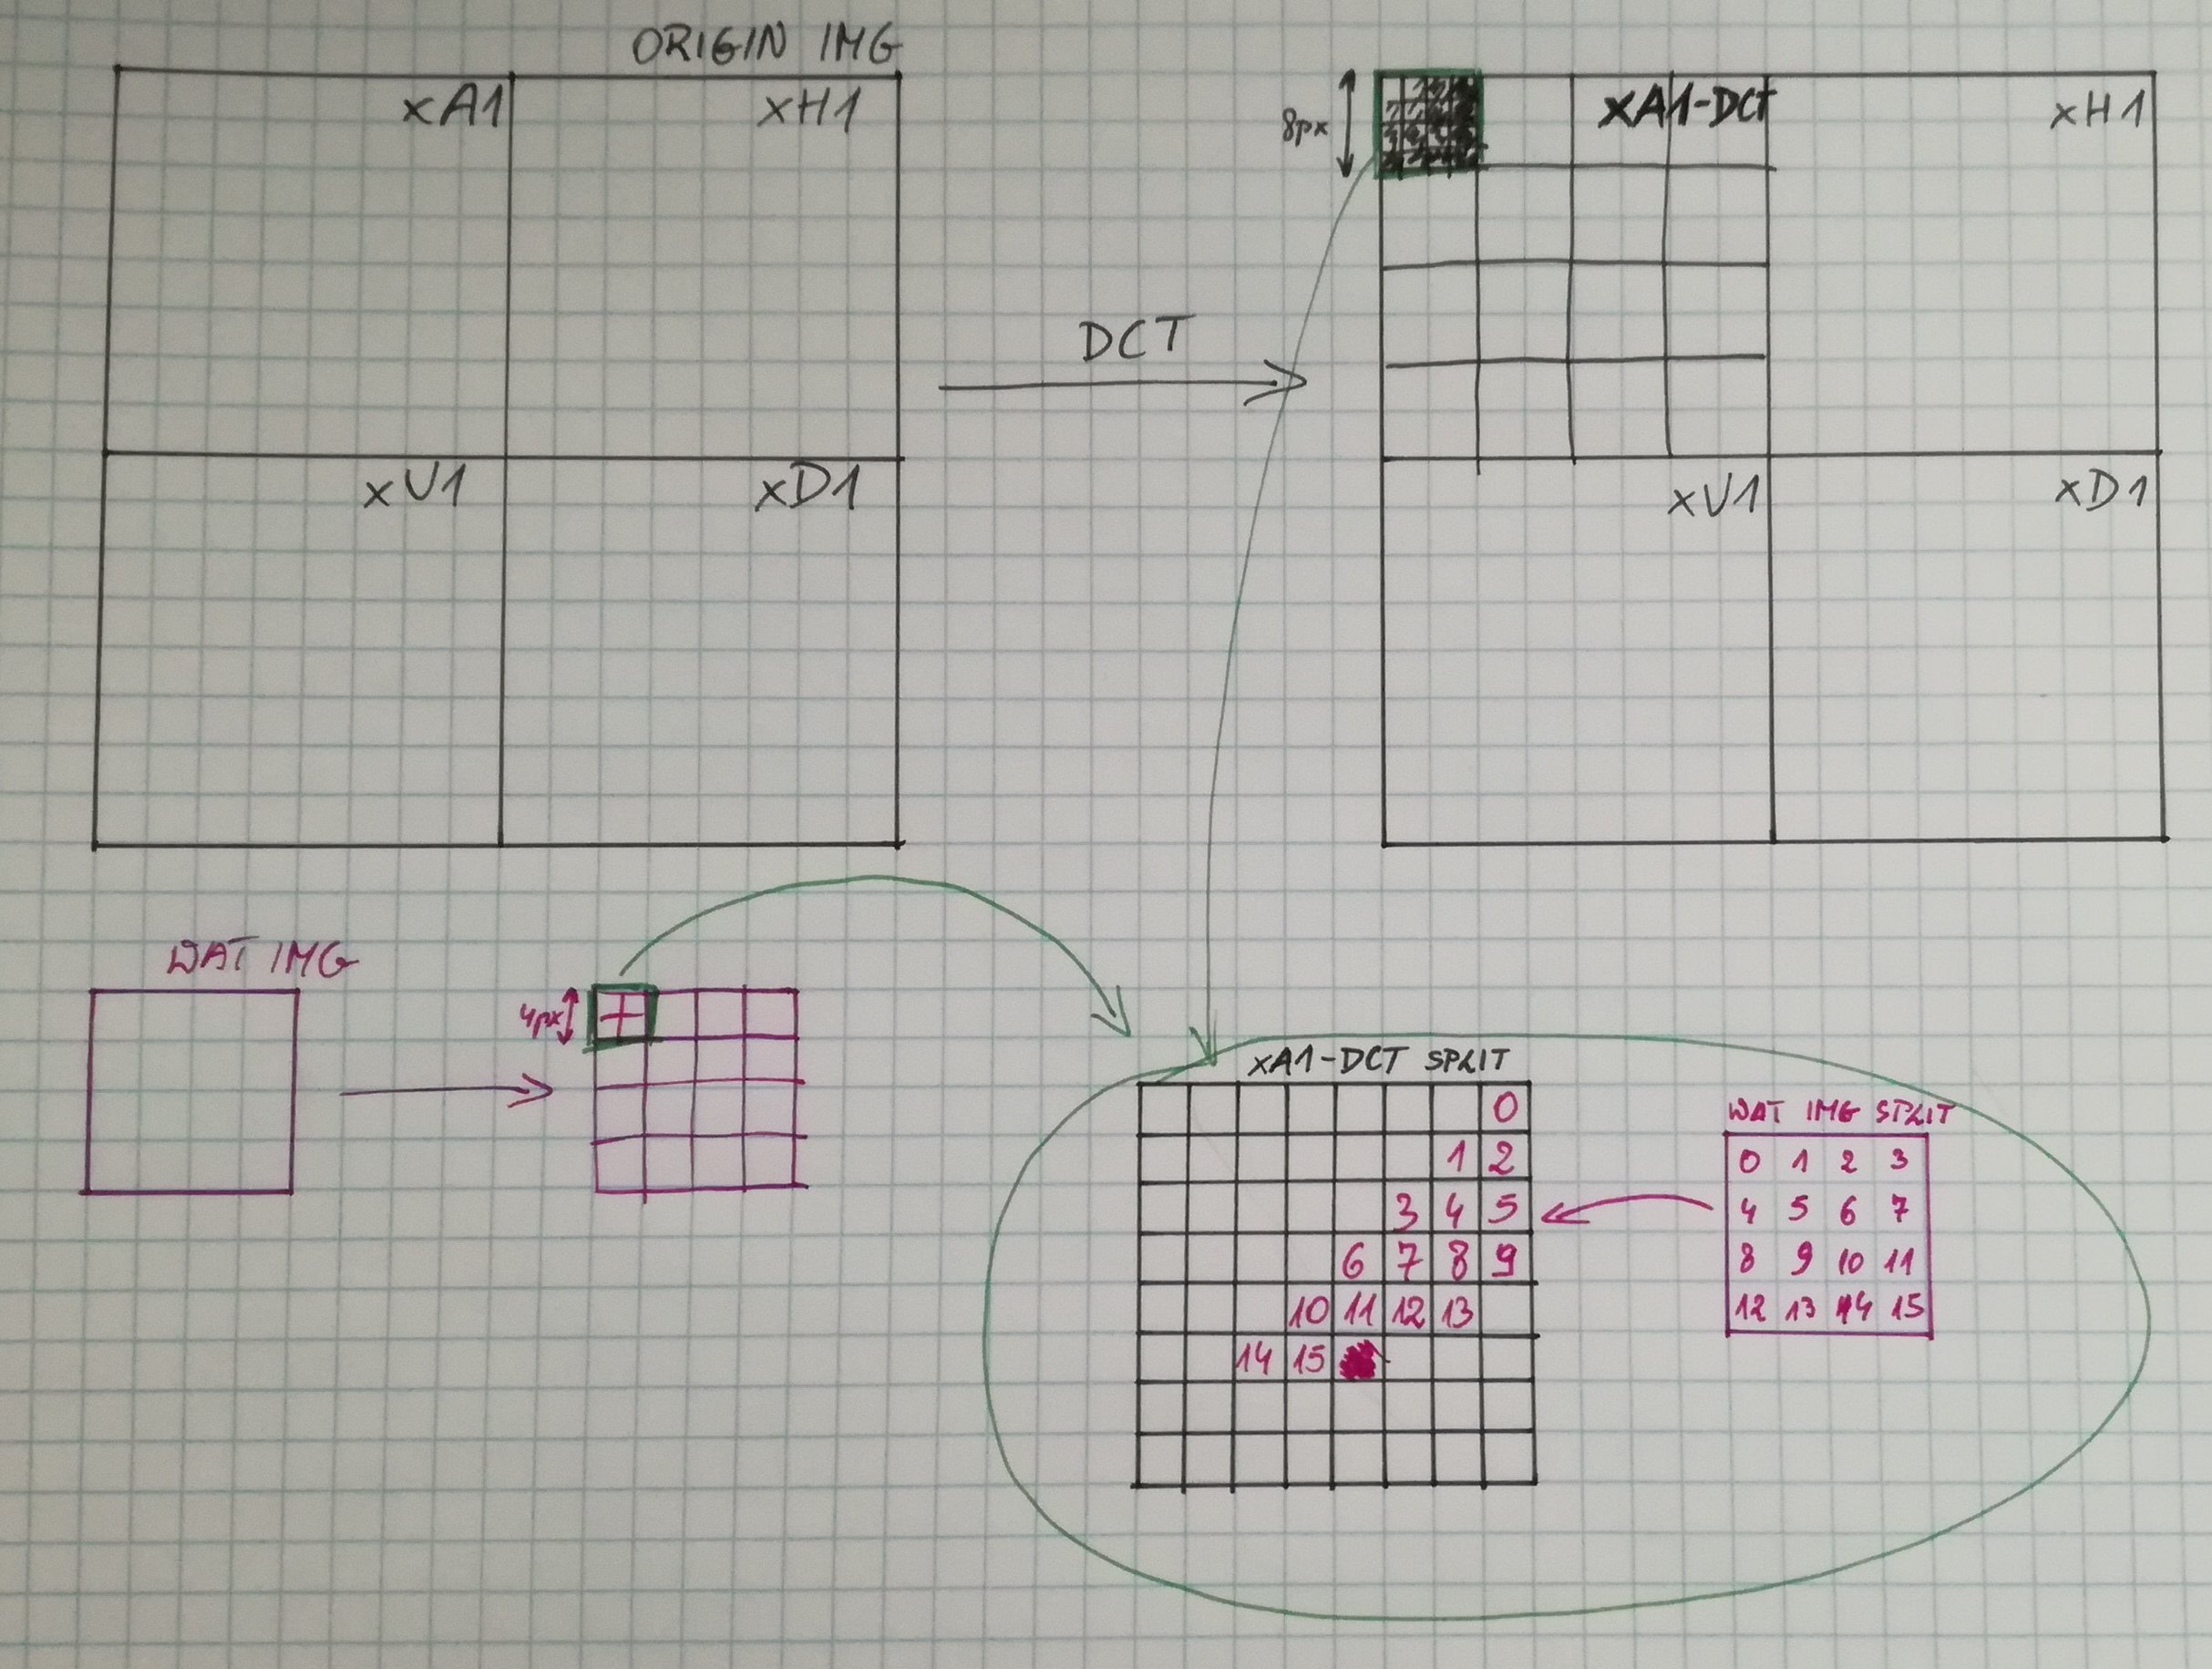 ORIGIN IMG
xA1 xH1
xV1 xD1
DCT
8px
xA1-DCT xH1
xV1 xD1
WAT IMG
4px
xA1-DCT SPLIT
0
1 2
3 4 5
6 7 8 9
10 11 12 13
14 15
WAT IMG SPLIT
0 1 2 3
4 5 6 7
8 9 10 11
12 13 14 15